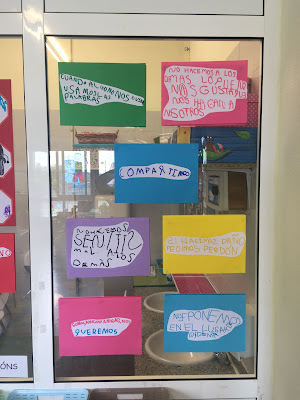 CUANDO ALGUIEN NOS
USAMOS LAS
PALABRAS
NO HACEMOS A LOS
DEMÁS LO QUE NO
NOS GUSTARÍA
NOS HAGAN A
NOSOTROS
COMPARTIMOS
NO HACEMOS
SENTIR
MAL A LOS
DEMÁS
SI HACEMOS DAÑO
PEDIMOS PERDÓN
QUEREMOS
NOS PONEMOS
EN EL LUGAR
NO
ÓNS